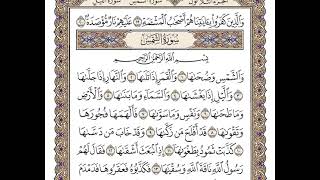 وَالَّذِينَ كَفَرُوا بِآيَاتِنَا هُمْ أَصْحَابُ الْمَشْأَمَةِ ۝ عَلَيْهِمْ نَارٌ مُؤْصَدَةٌ ۝
سُورَةُ الشَّمْسِ
بِسْمِ اللَّهِ الرَّحْمَٰنِ الرَّحِيمِ
وَالشَّمْسِ وَضُحَاهَا ۝ وَالْقَمَرِ إِذَا تَلَاهَا ۝ وَالنَّهَارِ إِذَا جَلَّاهَا
۝ وَاللَّيْلِ إِذَا يَغْشَاهَا ۝ وَالسَّمَاءِ وَمَا بَنَاهَا ۝ وَالْأَرْضِ
وَمَا طَحَاهَا ۝ وَنَفْسٍ وَمَا سَوَّاهَا ۝ فَأَلْهَمَهَا فُجُورَهَا
وَتَقْوَاهَا ۝ قَدْ أَفْلَحَ مَنْ زَكَّاهَا ۝ وَقَدْ خَابَ مَنْ دَسَّاهَا
۝ كَذَّبَتْ ثَمُودُ بِطَغْوَاهَا ۝ إِذِ انْبَعَثَ أَشْقَاهَا ۝ فَقَالَ لَهُمْ
رَسُولُ اللَّهِ نَاقَةَ اللَّهِ وَسُقْيَاهَا ۝ فَكَذَّبُوهُ فَعَقَرُوهَا فَدَمْدَمَ